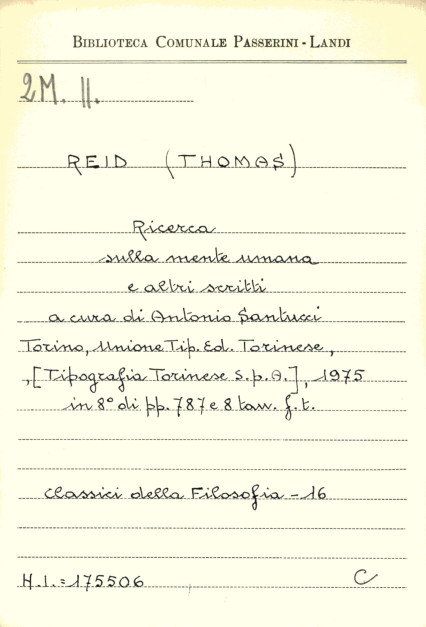 BIBLIOTECA COMUNALE PASSERINI - LANDI
2M. II.
REID (THOMAS)
Ricerca
sulla mente umana
e altri scritti
a cura di Antonio Santucci
Torino, Unione Tip. Ed. Torinese,
,[Tipografia Torinese S.p.A.], 1975
in 8° di pp. 787 e 8 tavv. f. t.
Classici della Filosofia - 16
H.I.=175506 C